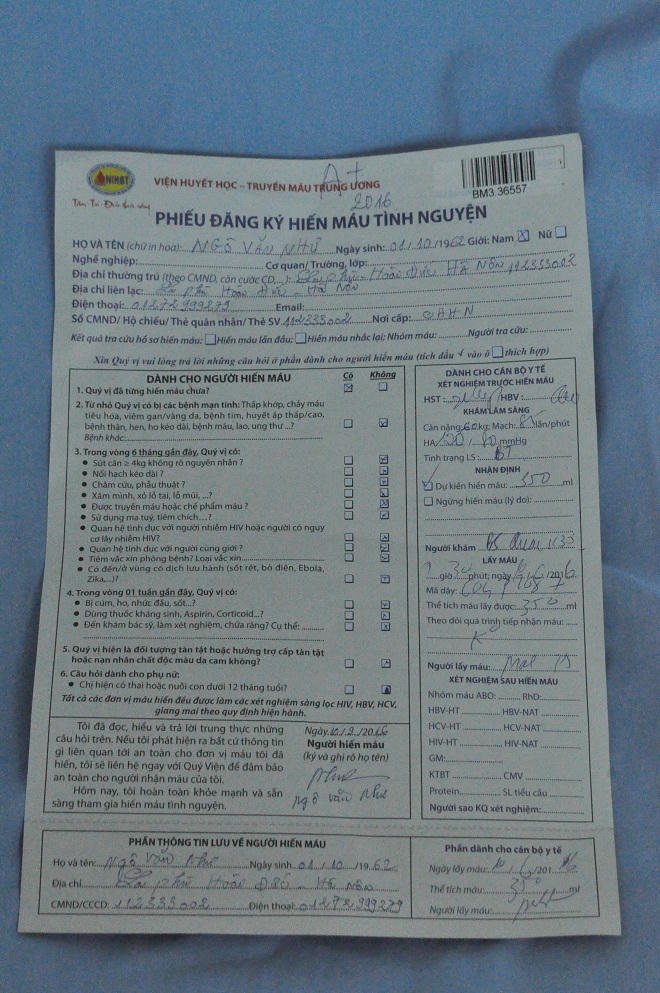 NIHBT
VIỆN HUYẾT HỌC – TRUYỀN MÁU TRUNG ƯƠNG
A+
2016
BM3.36557
PHIẾU ĐĂNG KÝ HIẾN MÁU TÌNH NGUYỆN
HỌ VÀ TÊN (chữ in hoa): NGÔ VĂN NHƯ Ngày sinh: 01/10/1962 Giới: Nam ☒ Nữ ☐
Nghề nghiệp: Cơ quan/ Trường, lớp:
Địa chỉ thường trú (theo CMND, căn cước CD,...): Phú - Hoài Đức Hà Nội 112333002
Địa chỉ liên lạc: Phú Hoài Đức - Hà Nội
Điện thoại: 01272999279 Email:
Số CMND/ Hộ chiếu/ Thẻ quân nhân/ Thẻ SV 112333002 Nơi cấp: CAHN
Kết quả tra cứu hồ sơ hiến máu: ☐ Hiến máu lần đầu; ☐ Hiến máu nhắc lại; Nhóm máu: Người tra cứu:
Xin Quý vị vui lòng trả lời những câu hỏi ở phần dành cho người hiến máu (tích dấu ✓ vào ô ☐ thích hợp)
DÀNH CHO NGƯỜI HIẾN MÁU Có Không
1. Quý vị đã từng hiến máu chưa?
2. Từ nhỏ Quý vị có bị các bệnh mạn tính: Thấp khớp, chảy máu
tiêu hóa, viêm gan/vàng da, bệnh tim, huyết áp thấp/cao,
bệnh thận, hen, ho kéo dài, bệnh máu, lao, ung thư ...?
Bệnh khác:
3. Trong vòng 6 tháng gần đây, Quý vị có:
• Sút cân ≥ 4kg không rõ nguyên nhân ?
• Nổi hạch kéo dài ?
• Châm cứu, phẫu thuật ?
• Xăm mình, xỏ lỗ tai, lỗ mũi, ...?
• Được truyền máu hoặc chế phẩm máu ?
• Sử dụng ma tuý, tiêm chích....?
• Quan hệ tình dục với người nhiễm HIV hoặc người có nguy
cơ lây nhiễm HIV?
• Quan hệ tình dục với người cùng giới ?
• Tiêm vắc xin phòng bệnh? Loại vắc xin
• Có đến/ở vùng có dịch lưu hành (sốt rét, bò điên, Ebola,
Zika,...)?
4. Trong vòng 01 tuần gần đây, Quý vị có:
• Bị cúm, ho, nhức đầu, sốt...?
• Dùng thuốc kháng sinh, Aspirin, Corticoid...?
• Đến khám bác sỹ, làm xét nghiệm, chữa răng? Cụ thể:
5. Quý vị hiện là đối tượng tàn tật hoặc hưởng trợ cấp tàn tật
hoặc nạn nhân chất độc màu da cam không?
6. Câu hỏi dành cho phụ nữ:
• Chị hiện có thai hoặc nuôi con dưới 12 tháng tuổi?
Tất cả các đơn vị máu hiến đều được làm các xét nghiệm sàng lọc HIV, HBV, HCV,
giang mai theo quy định hiện hành.
Tôi đã đọc, hiểu và trả lời trung thực những
câu hỏi trên. Nếu tôi phát hiện ra bất cứ thông tin
gì liên quan tới an toàn cho đơn vị máu tôi đã
hiến, tôi sẽ liên hệ ngay với Quý Viện để đảm bảo
an toàn cho người nhận máu của tôi.
Hôm nay, tôi hoàn toàn khỏe mạnh và sẵn
sàng tham gia hiến máu tình nguyện.
Ngày
Người hiến máu
(ký và ghi rõ họ tên)
Ngô Văn Như
DÀNH CHO CÁN BỘ Y TẾ
XÉT NGHIỆM TRƯỚC HIẾN MÁU
HST: HBV:
KHÁM LÂM SÀNG
Cân nặng: 60kg; Mạch: 85 lần/phút
HA 120 / 80 mmHg
Tình trạng LS: BT
NHẬN ĐỊNH
Dự kiến hiến máu: 350 ml
☐ Ngừng hiến máu (lý do):
Người khám BS
LẤY MÁU
giờ 30 phút; ngày 2016
Mã dây:
Thể tích máu lấy được: 350 ml
Theo dõi quá trình tiếp nhận máu:
Người lấy máu:
XÉT NGHIỆM SAU HIẾN MÁU
Nhóm máu ABO: RHD:
HBV-HT HBV-NAT
HCV-HT HCV-NAT
HIV-HT HIV-NAT
GM:
KTBT CMV
Protein SL tiểu cầu
Người sao KQ xét nghiệm:
PHẦN THÔNG TIN LƯU VỀ NGƯỜI HIẾN MÁU
Họ và tên: Ngô Văn Như Ngày sinh 01/10/1962
Địa chỉ Phú Hoài Đức - Hà Nội
CMND/CCCD: 112333002 Điện thoại: 01272999279
Phần dành cho cán bộ y tế
Ngày lấy máu: 10/6/2016
Thể tích máu: 350 ml
Người lấy máu: